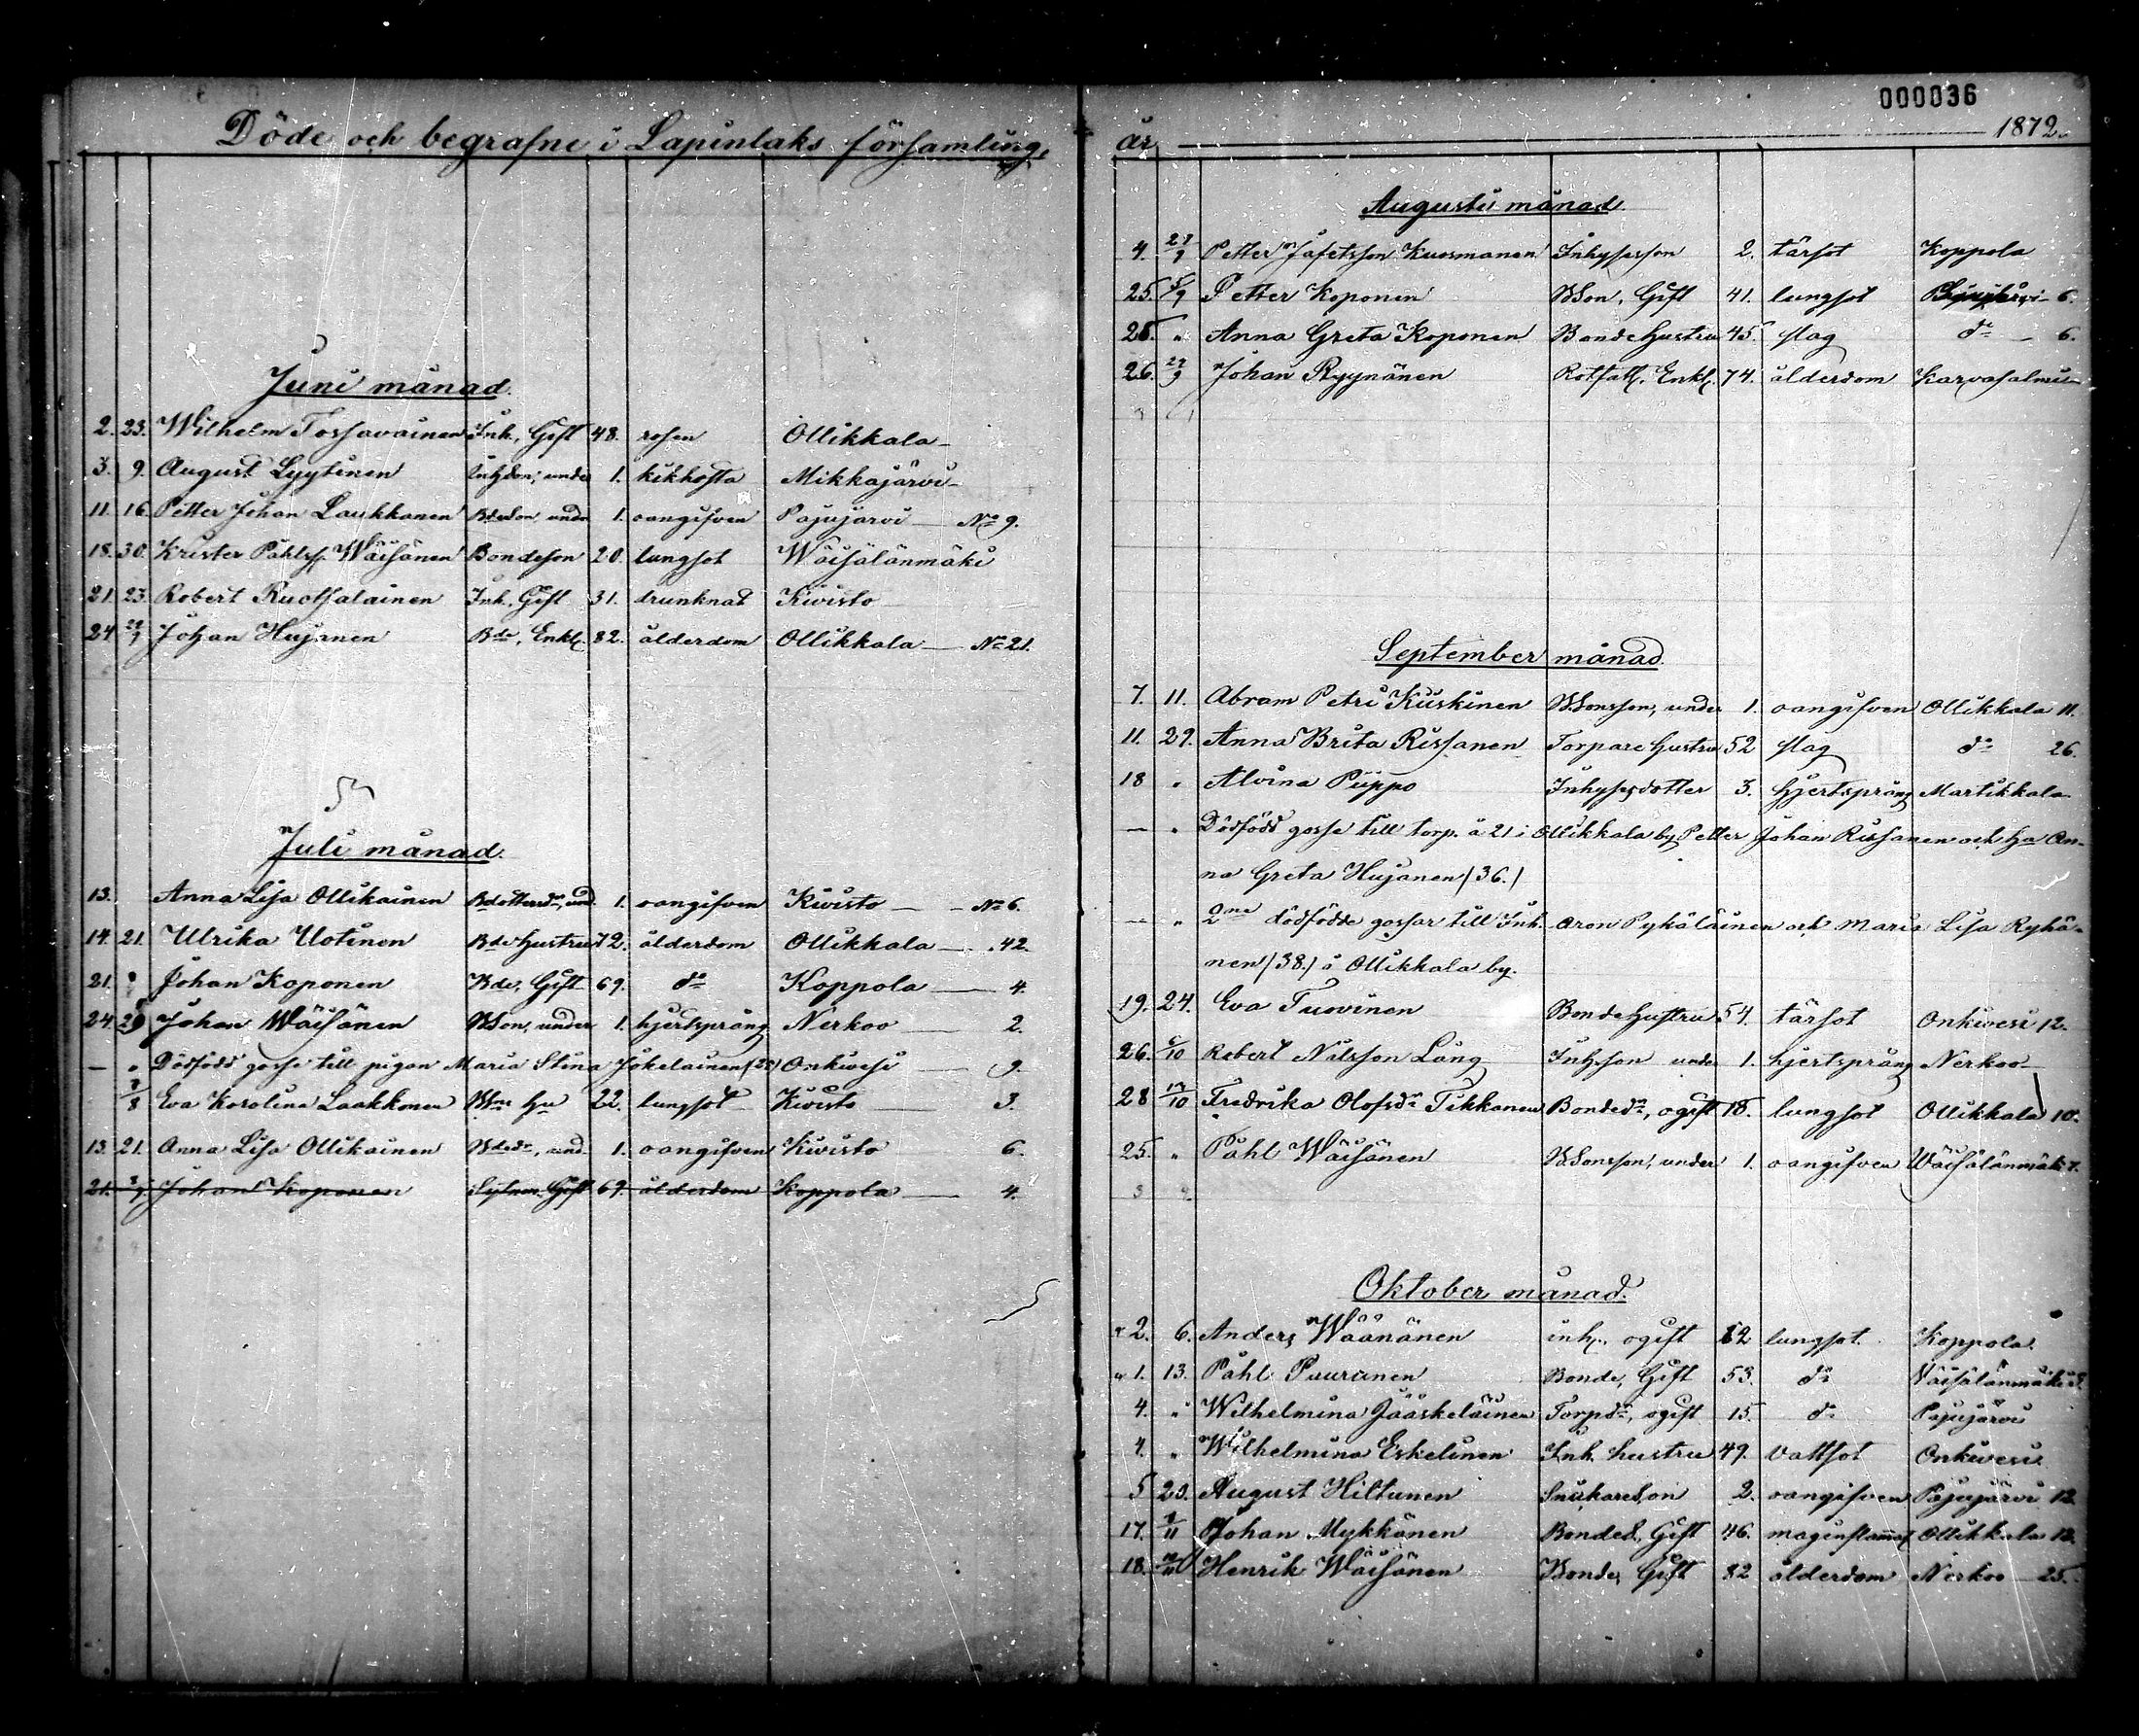 Döde och begrafne i Lapinlaks församling,
Juni månad.
2. 23. Wilhelm Tossavainen Inh., Gift 48. rosen Ollikkala
3. 9. August Lyytinen Inhson, under 1. kikhosta Mikkajärvi
11. 16. Petter Johan Laukkanen BdeSon, under 1. oangifven Pajujärvi No 9.
18. 30. Krister Påhlss. Wäisänen Bondeson 20. lungsot Wäisälänmäki
21. 23. Robert Ruotsalainen Inh. Gift 31. drunknad Kivistö
24 Johan Hujanen Bde, Enkl. 82. ålderdom Ollikkala No 21.
Juli månad.
13. Anna Lisa Ollikainen und. 1. oangifven Kivistö No 6.
14. 21. Ulrika Uotinen Bde hustru 72. ålderdom Ollikkala 42.
21. Johan Koponen Bde, Gift 69. do Koppola 4.
24. 29 Johan Wäisänen BSon, under 1. hjertsprång Nerkoo 2.
— " Dödfödd gosse till pigan Maria Stina Jokelainen Onkivesi 9.
Eva Karolina Laakkonen hu 22. lungsot Kivistö 3.
13. 21. Anna Lisa Ollikainen und. 1. oangifven Kivistö 6.
21. Johan Koponen Gift 69. ålderdom Koppola 4.
000036
år 1872.
Augusti månad.
4. Petter Jafetsson Kuosmanen Inhysesson 2. tärsot Koppola
25. 5/9 Petter Koponen BSon, Gift 41. lungsot 6.
25. " Anna Greta Koponen Bondehustru 45. slag do 6.
26. Johan Ryynänen Enkl. 74. ålderdom Karvasalmi
September månad.
7. 11. Abram Petri Kiiskinen BSonsson, under 1. oangifven Ollikkala 11.
11. 29. Anna Brita Rissanen Torpare hustru 52 slag do 26.
18 " Alvina Piippo Inhysesdotter 3. hjertsprång Martikkala
— " Dödfödd gosse till torp. å 21 i Ollikkala by Petter Johan Rissanen och hu An-
na Greta Hujanen (36.)
— " 2ne dödfödde gossar till Inh. Aron Pykäläinen och Maria Lisa Ryhä-
nen (38.) i Ollikkala by.
19. 24. Eva Tuovinen Bondehustru 54. tärsot Onkivesi 12.
26. 6/10 Robert Nilsson Lång Inhson under 1. hjertsprång Nerkoo
28 13/10 Fredrika Olofsdr Tikkanen Bondedr, ogift 18. lungsot Ollikkala 10.
25. " Påhl Wäisänen BSonsson, under 1. oangifven Wäisälänmäki 7.
Oktober månad.
2. 6. Anders Wäänänen inh., ogift lungsot. Koppola.
1. 13. Påhl Puurunen Bonde, Gift 53. do Väisälänmäki
4. " Wilhelmina Jääskeläinen Torpdr, ogift 15. do Pajujärvi
4. " Wilhelmina Eskelinen Inh. hustru 49. vattsot Onkivesi
5 20. August Hiltunen SnickareSon 2. oangifven Pajujärvi 12.
17. Johan Mykkänen BondeS. Gift 46. maginflammat. Ollikkala 12.
18. Henrik Wäisänen Bonde, Gift 82 ålderdom Nerkoo 25.